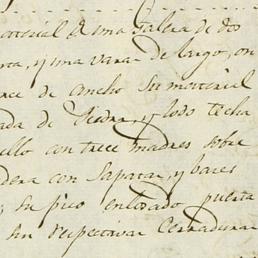 material de una Galera de dos
y una vara de largo, on
nce de ancho su material
da de Piedra, y lodo techa
llo con trece madres sobre
dera con Sapatas, y bases
su piso enlosado puerta
sus respectivas Cerraduras